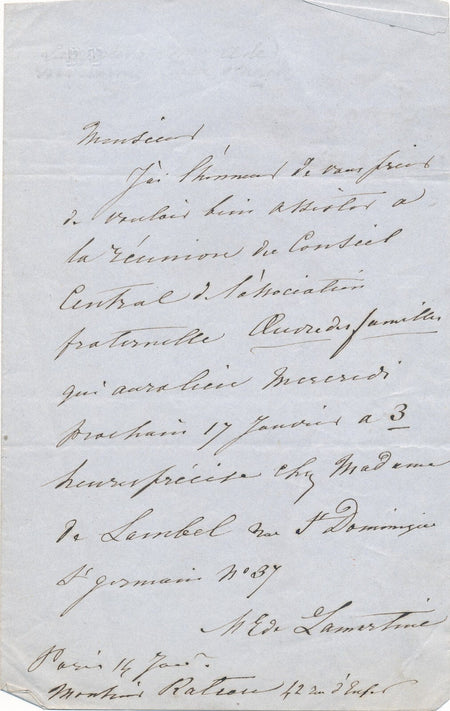 Monsieur
J'ai l'honneur de vous prier
de vouloir bien assister a
la réunion du Conseil
Central de l'association
fraternelle Œuvre des familles
qui aura lieu Mercredi
prochain 17 Janvier a 3
heures précise chez Madame
de Lambel rue St Dominique
St germain No 37
M E de Lamartine
Paris 14 Janr.
Monsieur Rateau 42 rue d'Enfer